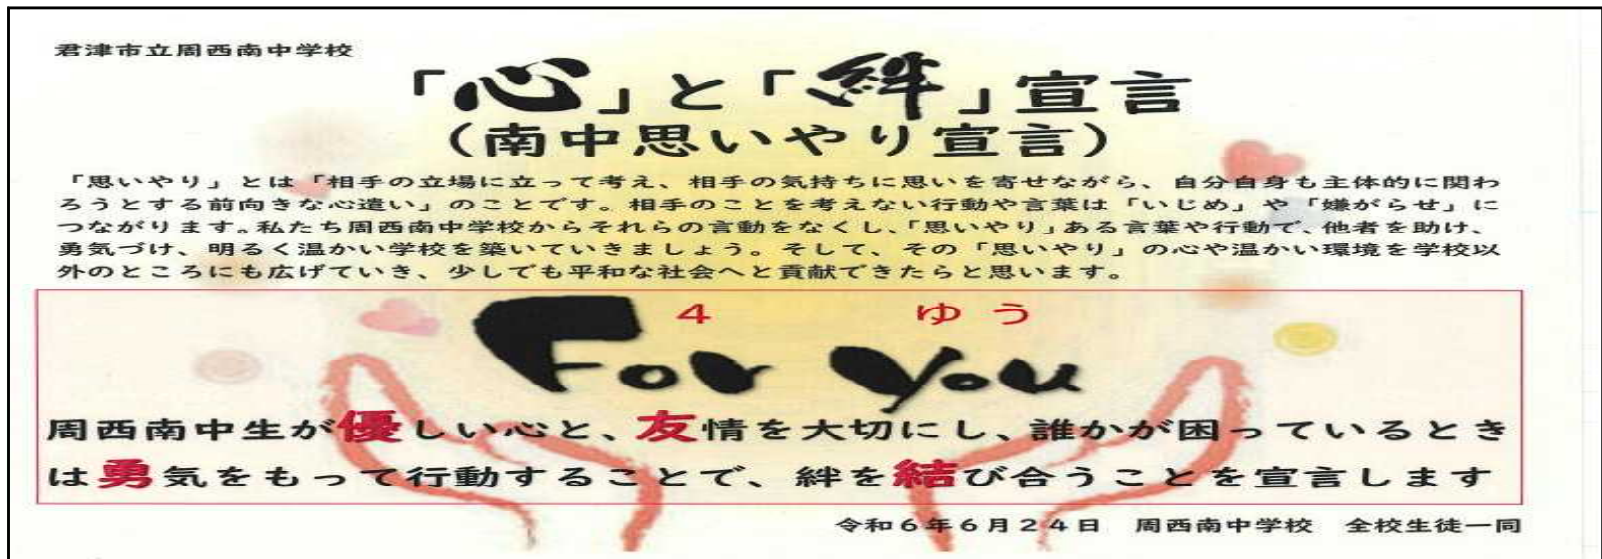 君津市立周西南中学校
「心」と「絆」宣言
（南中思いやり宣言）
「思いやり」とは「相手の立場に立って考え、相手の気持ちに思いを寄せながら、自分自身も主体的に関わ
ろうとする前向きな心遣い」のことです。相手のことを考えない行動や言葉は「いじめ」や「嫌がらせ」に
つながります。私たち周西南中学校からそれらの言動をなくし、「思いやり」ある言葉や行動で、他者を助け、
勇気づけ、明るく温かい学校を築いていきましょう。そして、その「思いやり」の心や温かい環境を学校以
外のところにも広げていき、少しでも平和な社会へと貢献できたらと思います。
４ ゆう
For You
周西南中生が優しい心と、友情を大切にし、誰かが困っているとき
は勇気をもって行動することで、絆を結び合うことを宣言します
令和６年６月２４日 周西南中学校 全校生徒一同